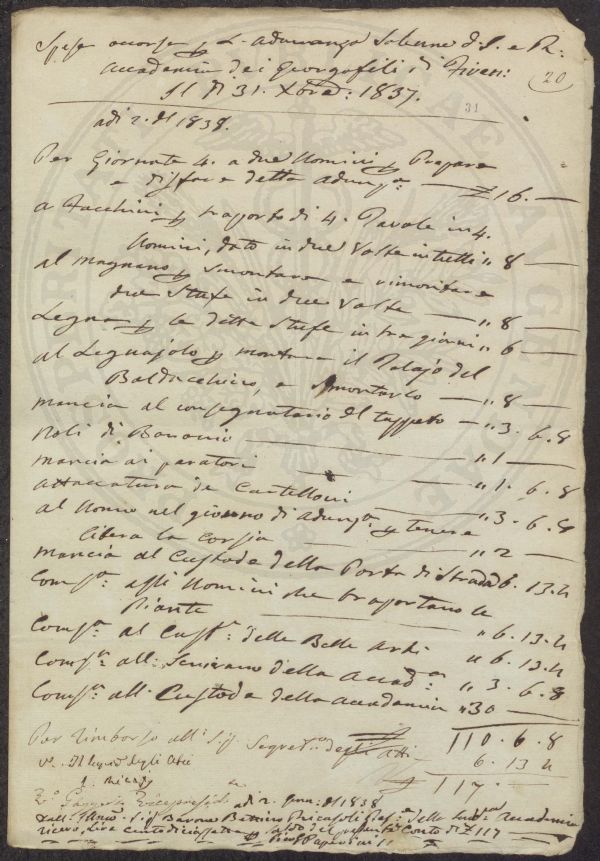 Spese occorse p. L'adunanza Solenne d. I. e R:
Accademia dei Georgofili, di Firen:
Il dì 31. Xbre: 1837.
20
31
adì 2. del 1838.
Per Giornate 4. a due Uomini p. Preparare
e disfare detta adunza — £ 16. —
a Facchini p. trasporto di 4. Tavole in 4.
Uomini, dato in due Volte in tutti " 8 —
al Magnano p. Smontare e rimontare
due Stufe in due Volte — " 8 —
Legna p. le dette Stufe in tre giorni " 6 —
al Legnajolo p. montare il Palajo del
Baldacchino, e Smontarlo — " 8 —
mancia al consegnatario del tappeto — " 3. 6. 8
Noli di — " 1 —
mancia ai paratori — " 1. 6. 8
attaccatura de Cartelloni — " 3. 6. 8
al Uomo nel giorno di adunza p. tenere
libera la corsia — " 2 —
mancia al Custode della Porta di Strada 6. 13. 4
Comp.a agli Uomini che trasportano le
Piante — " 6. 13. 4
Comp.a al Cust.e delle Belle Arti " 6. 13. 4
Comp.a all: Scrivano della Accad.a: " 3. 6. 8
Comp.a all. Custode della Accademia " 30 —
110. 6. 8
Per rimborso all: Sig. Segret.o degli Atti 6. 13 4
£ 117. —
V. Il Segret. degli Atti
adì 2. Gen.: del 1838
Dall' Ill.mo Sig Barone Bettino Ricasoli della Accademia
ricevo, Lire centodiciassette p. saldo del presente Conto di £ 117